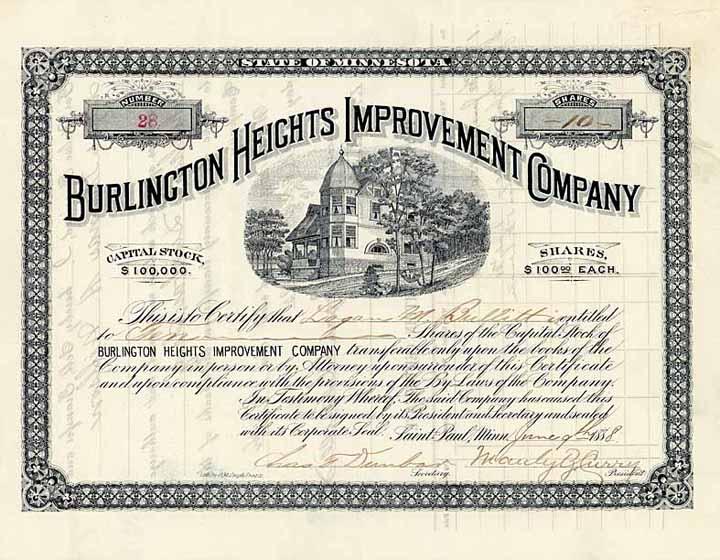 STATE OF MINNESOTA
NUMBER
28
SHARES
-10-
BURLINGTON HEIGHTS IMPROVEMENT COMPANY
CAPITAL STOCK,
$100,000.
SHARES,
$100.00 EACH.
This is to Certify that M. Bullitt is entitled
to Ten Shares of the Capital Stock of
BURLINGTON HEIGHTS IMPROVEMENT COMPANY transferable only upon the books of the
Company in person or by Attorney upon surrender of this Certificate
and upon compliance with the provisions of the By Laws of the Company.
In Testimony Whereof, The said Company has caused this
Certificate to be signed by its President and Secretary and sealed
with its Corporate Seal. Saint Paul, Minn. June 9th 1888
Secretary.
President.